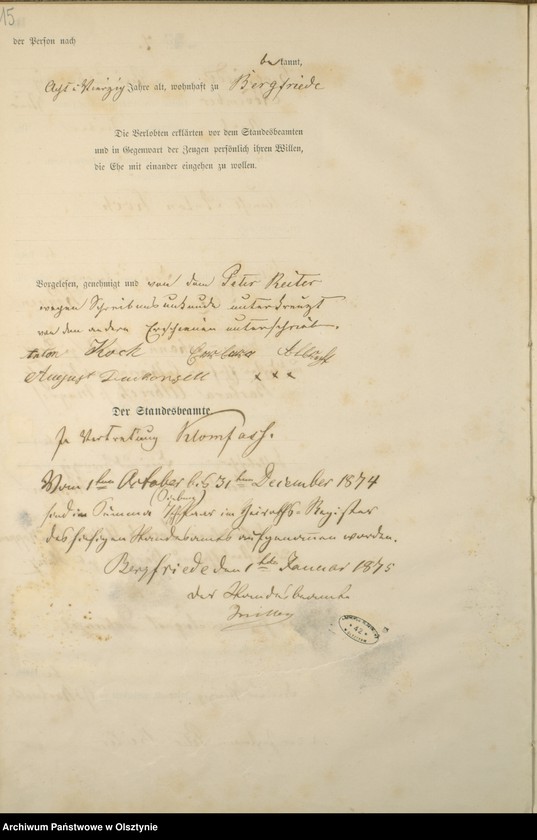 15
der Person nach
bekannt,
Acht u Vierzig Jahre alt, wohnhaft zu Bergfriede
Die Verlobten erklärten vor dem Standesbeamten
und in Gegenwart der Zeugen persönlich ihren Willen,
die Ehe mit einander eingehen zu wollen.
Vorgelesen, genehmigt und von dem Peter Reiter
wegen Schreibensunkunde unterkreuzt
von den andern Erschienen unterschrieb.
Anton Koch
August x x x
Der Standesbeamte
In Vertretung Klomfass.
Vom 1ten October bis 31ten December 1874
sind in Summa Paar im Heiraths-Register
des hiesigen Standesamts aufgenommen worden.
Bergfriede den 1ten Januar 1875
Der Standesbeamte
42
Archiwum Państwowe w Olsztynie